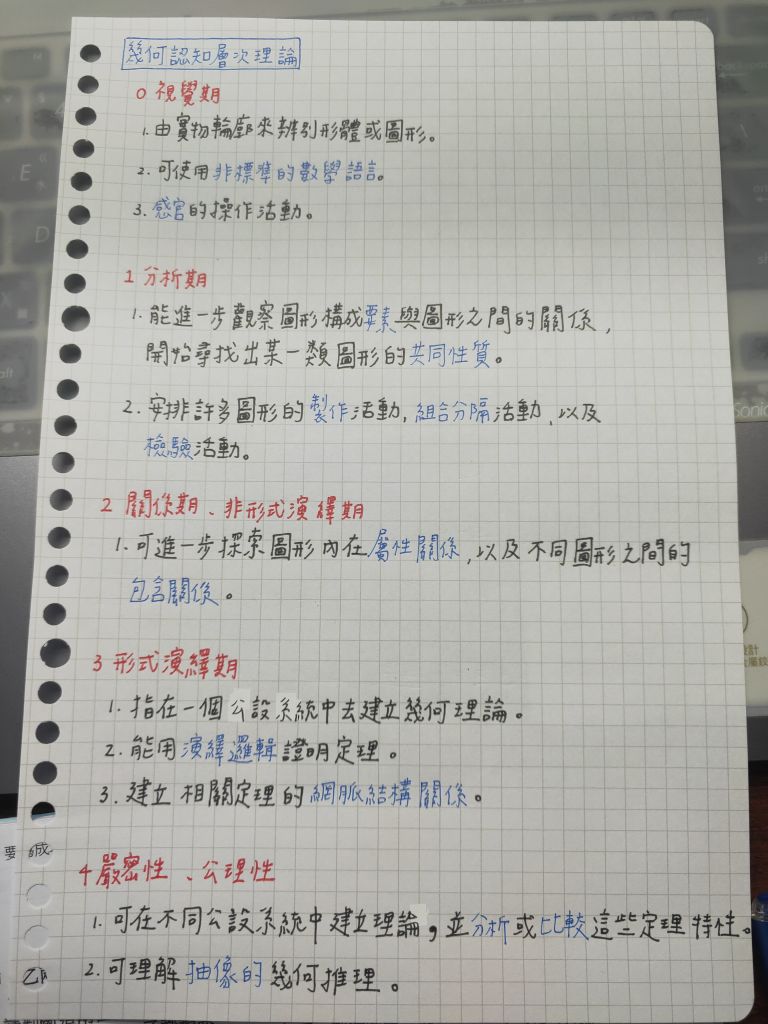 幾何認知層次理論
0 視覺期
1. 由實物輪廓來辨別形體或圖形。
2. 可使用非標準的數學語言。
3. 感官的操作活動。
1 分析期
1. 能進一步觀察圖形構成要素與圖形之間的關係,
開始尋找出某一類圖形的共同性質。
2. 安排許多圖形的製作活動,組合分隔活動、以及
檢驗活動。
2 關係期、非形式演繹期
1. 可進一步探索圖形內在屬性關係,以及不同圖形之間的
包含關係。
3 形式演繹期
1. 指在一個公設系統中去建立幾何理論。
2. 能用演繹邏輯證明定理。
3. 建立相關定理的網脈結構關係。
4 嚴密性、公理性
1. 可在不同公設系統中建立理論,並分析或比較這些定理特性。
2. 可理解抽像的幾何推理。